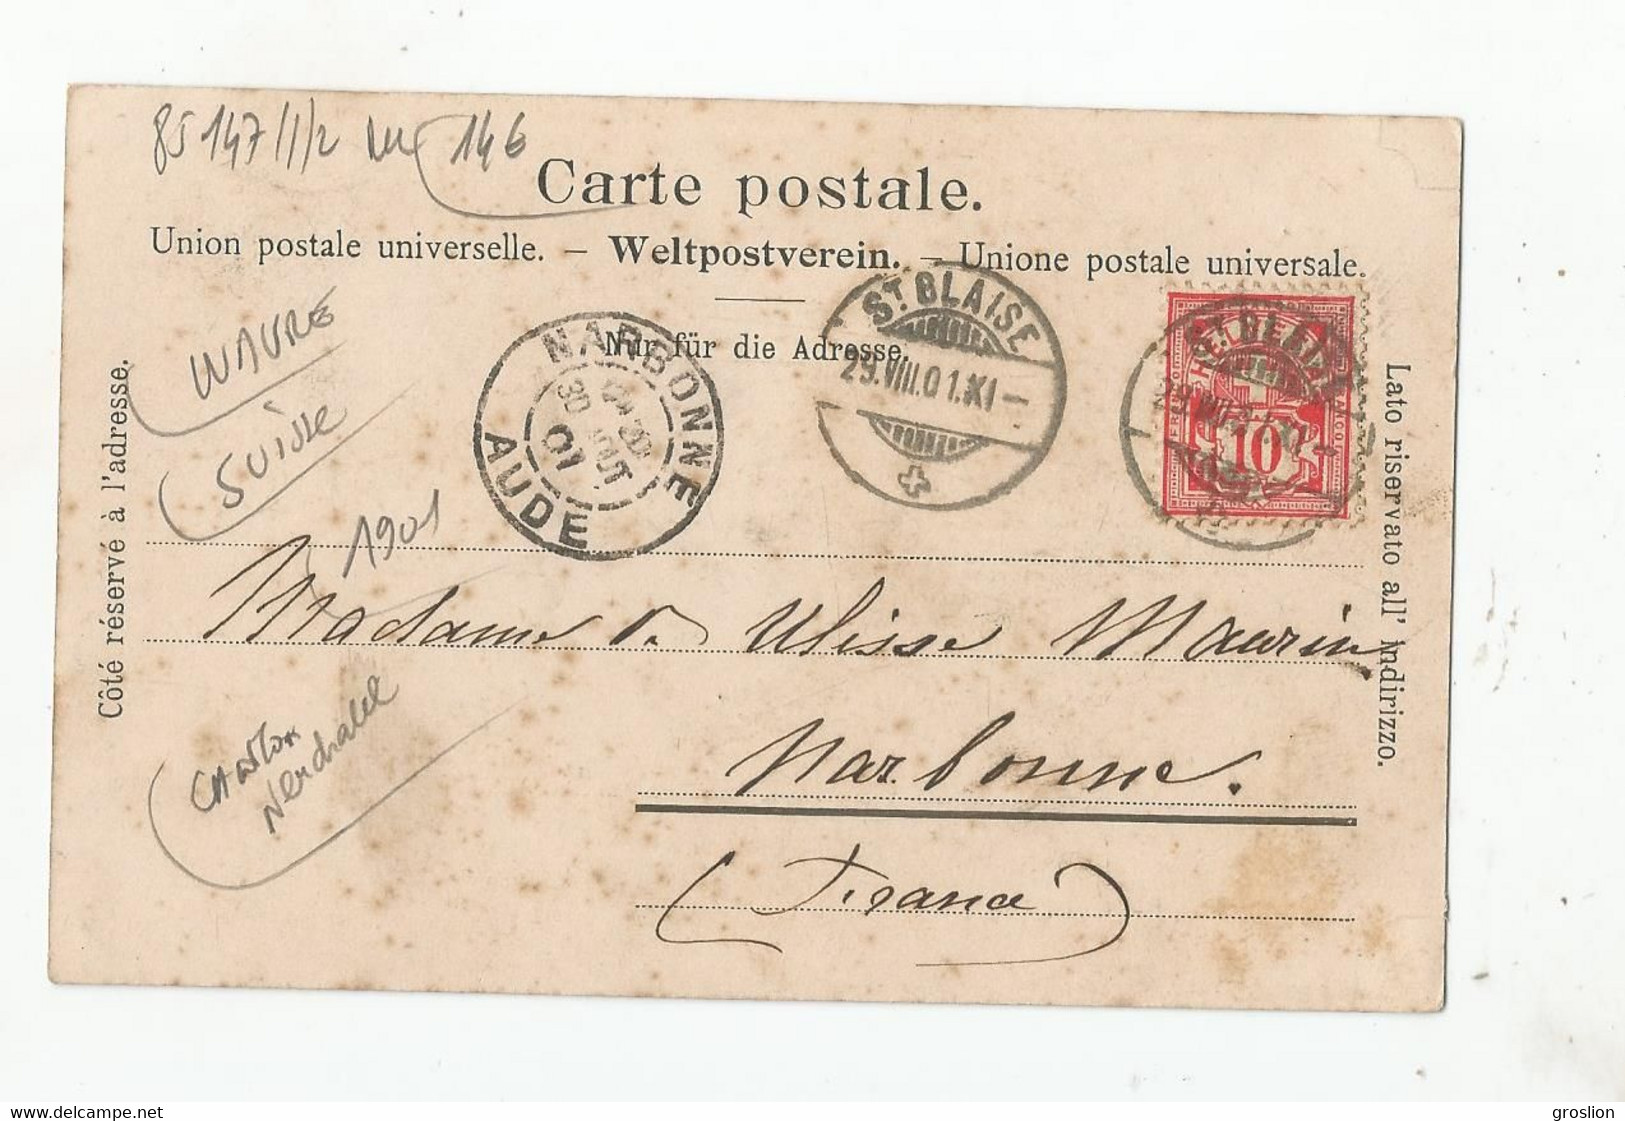 85147 1/2 146
Carte postale.
Union postale universelle. – Weltpostverein. – Unione postale universale.
Nur für die Adresse.
WAVRE
SUISSE
1901
Côté réservé à l'adresse.
Lato riservato all' indirizzo.
NARBONNE
30 AOUT
01
AUDE
ST. BLAISE
29.VIII.01.XI–
ST. BLAISE
29.VIII.01.XI–
HELVETIA
FRANCO
10
Madame Ulisse Maurin
Narbonne.
(France)
CANTON
Neuchatel
www.delcampe.net
groslion